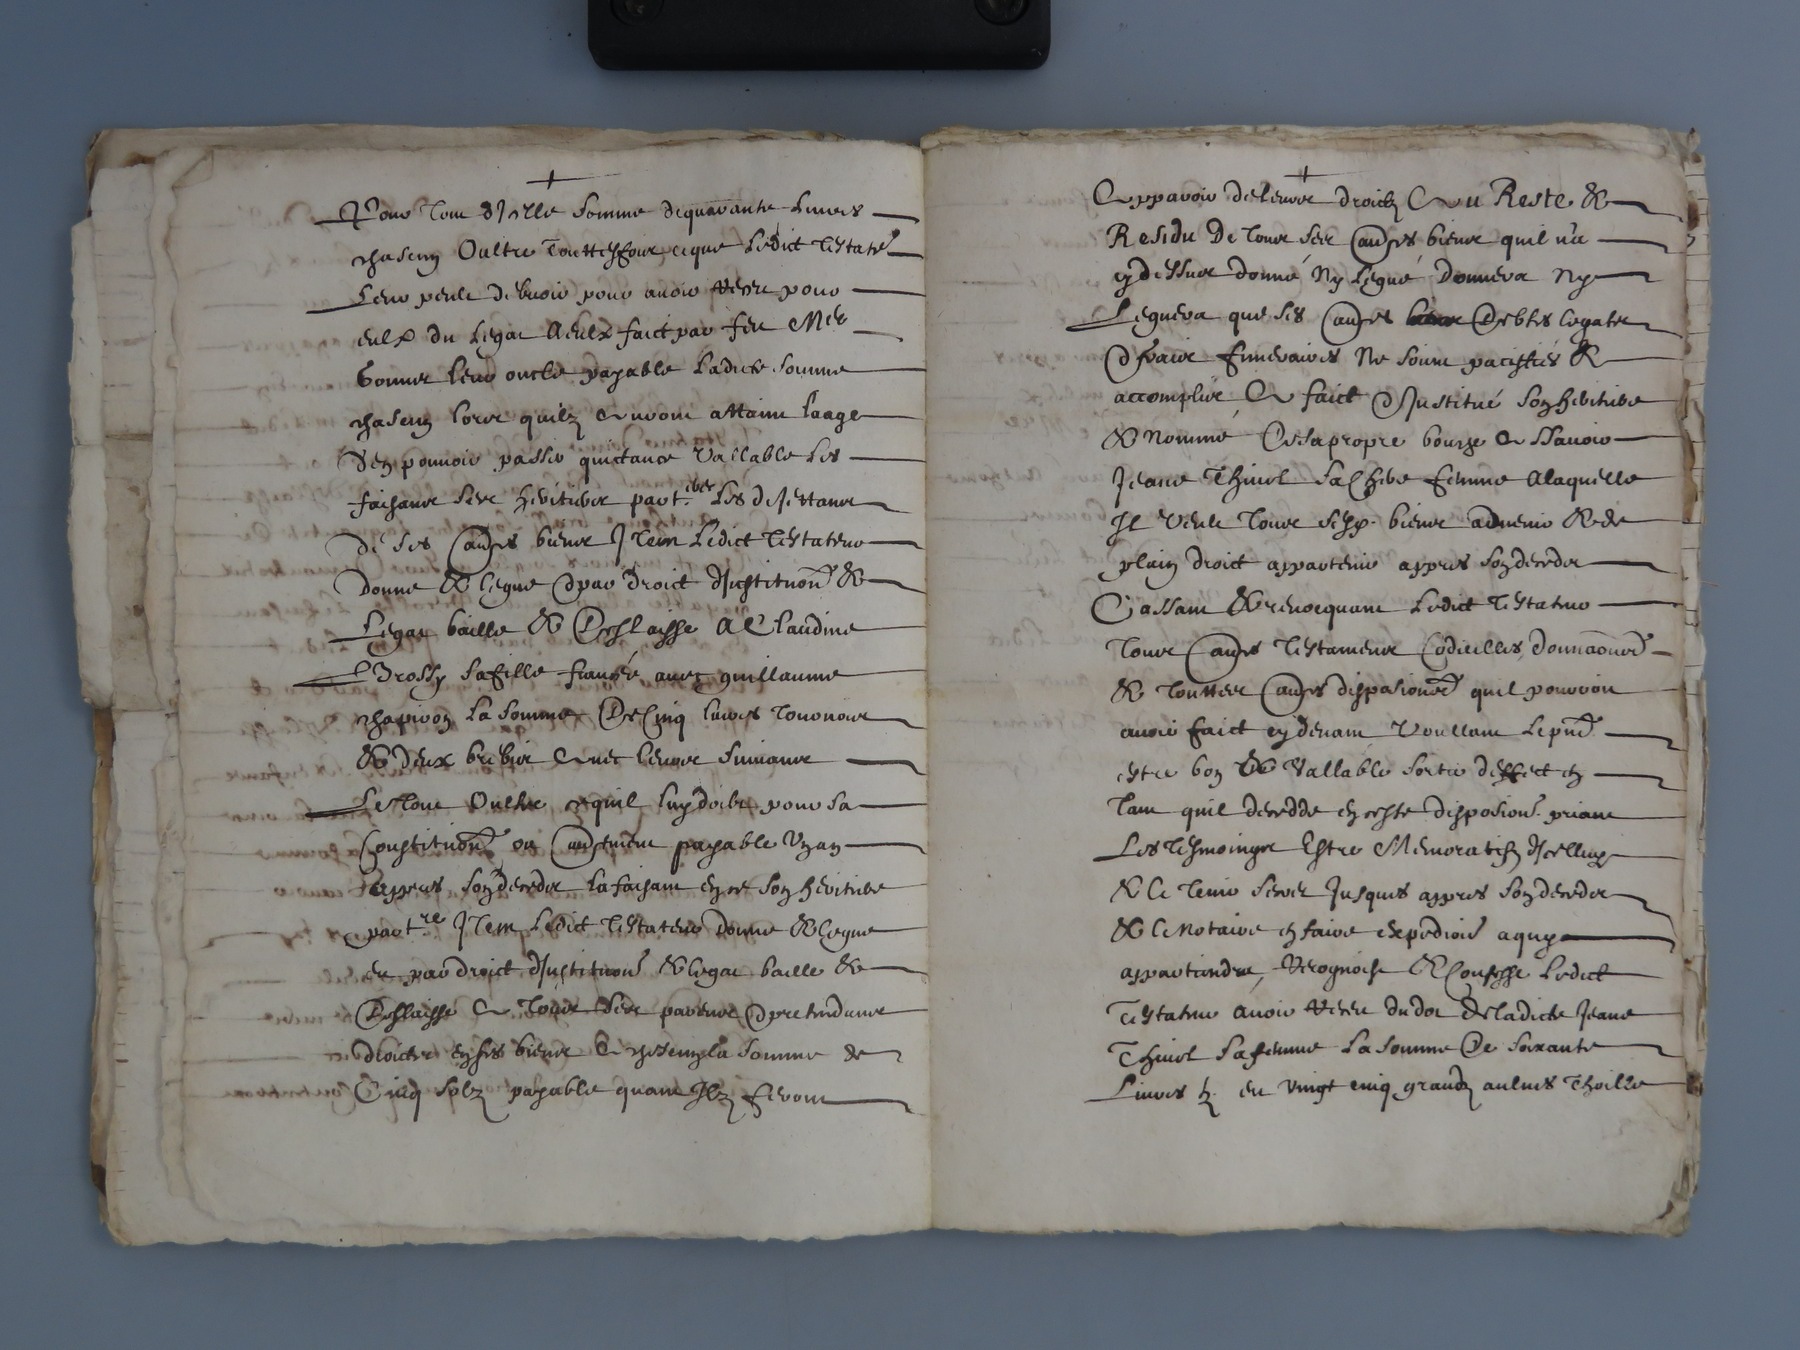 Pour tous d'Icelle somme de quarante livres
chascung Oultre Touttesfois ce que Ledict Testateur
Leur peult debvoir pour avoir Receu pour
eulx du Legat A eulx faict par feu Mre
leur oncle payable Ladicte somme
chascung lors quilz auront attaint laage
den pouvoir passer quictance Vallable Les
faisant ses heritiers part.ers Les dejettant
de ses aultres biens Item Ledict Testateur
Donne & legue & par droict d'Institution &
Legat baille & Deslaisse A Claudine
Brossy sa fille fiancée avec guillaume
chapiron La somme De Cinq livres tournois
& deux brebis avec leurs suivans
Le tout Oultre ce quil luy doibt pour sa
Constitution ou aultrement payable Ung an
appres son deceder la faisant en ce son heritiere
part.re Item Ledict Testateur Donne & legue
& par droict d'Institution & legat baille &
Deslaisse A Tous ses parens & pretendants
droictz en ses biens A chascung la somme de
Cinq solz payable quant Ilz feront
Apparoir de leurs droictz Au Reste &
Residu De tous ses aultres biens quil n'a
cy dessus donné Ny Legué Donnera Ny
Leguera que ses aultres Debtes legatz
& fraix funeraires Ne soient paciffiés &
accomplis A faict & Institué son heritiere
& Nommé De sa propre bouche Assavoir
Jeane Thivel sa Chere femme A laquelle
Il Veult tous sesd. biens advenir & de
plain droict appartenir appres son deceder
Cassant & revocquant Ledict Testateur
tous aultres Testamens Codicilles, donnaōns
& touttes aultres dispōsions quil pourroit
avoir faict cy devant Voullant Le pnt
estre bon & Vallable sortir d'effect &
tant quil decedde en ceste disposion. priant
Les tesmoingz Estre Memoratifz d'Icelluy
& le tenir secret Jusques appres son deceder
& le Notaire en faire expedion a quy
appartiendra, Recognoist & Confesse Ledict
Testateur avoir Receu du dot De ladicte Jeane
Thivel sa femme La somme De soixante
Livres tz. & Vingt cinq grandz aulnes Thoille